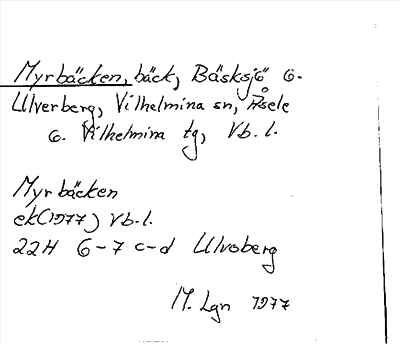 Myrbäcken, bäck, Bäsksjö o.
Ulverberg, Vilhelmina sn, Åsele
o. Vilhelmina tg, Vb. l.
Myrbäcken
ek(1977) Vb. l.
22H 6-7 c-d Ulvoberg
M. Lgn 1977